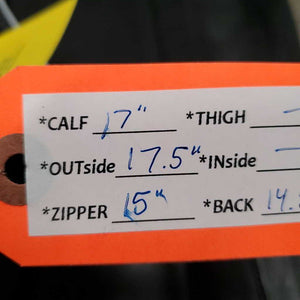 *CALF 17" *THIGH -
*OUTside 17.5" *INside -
*ZIPPER 15" *BACK 14.